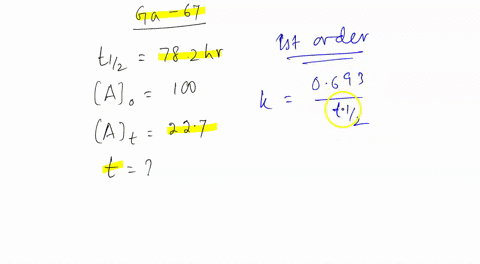 Ga-67
t1/2 = 78.2hr
[A]o = 100
[A]t = 22.7
t = ?
1st order
k = 0.693 / t1/2